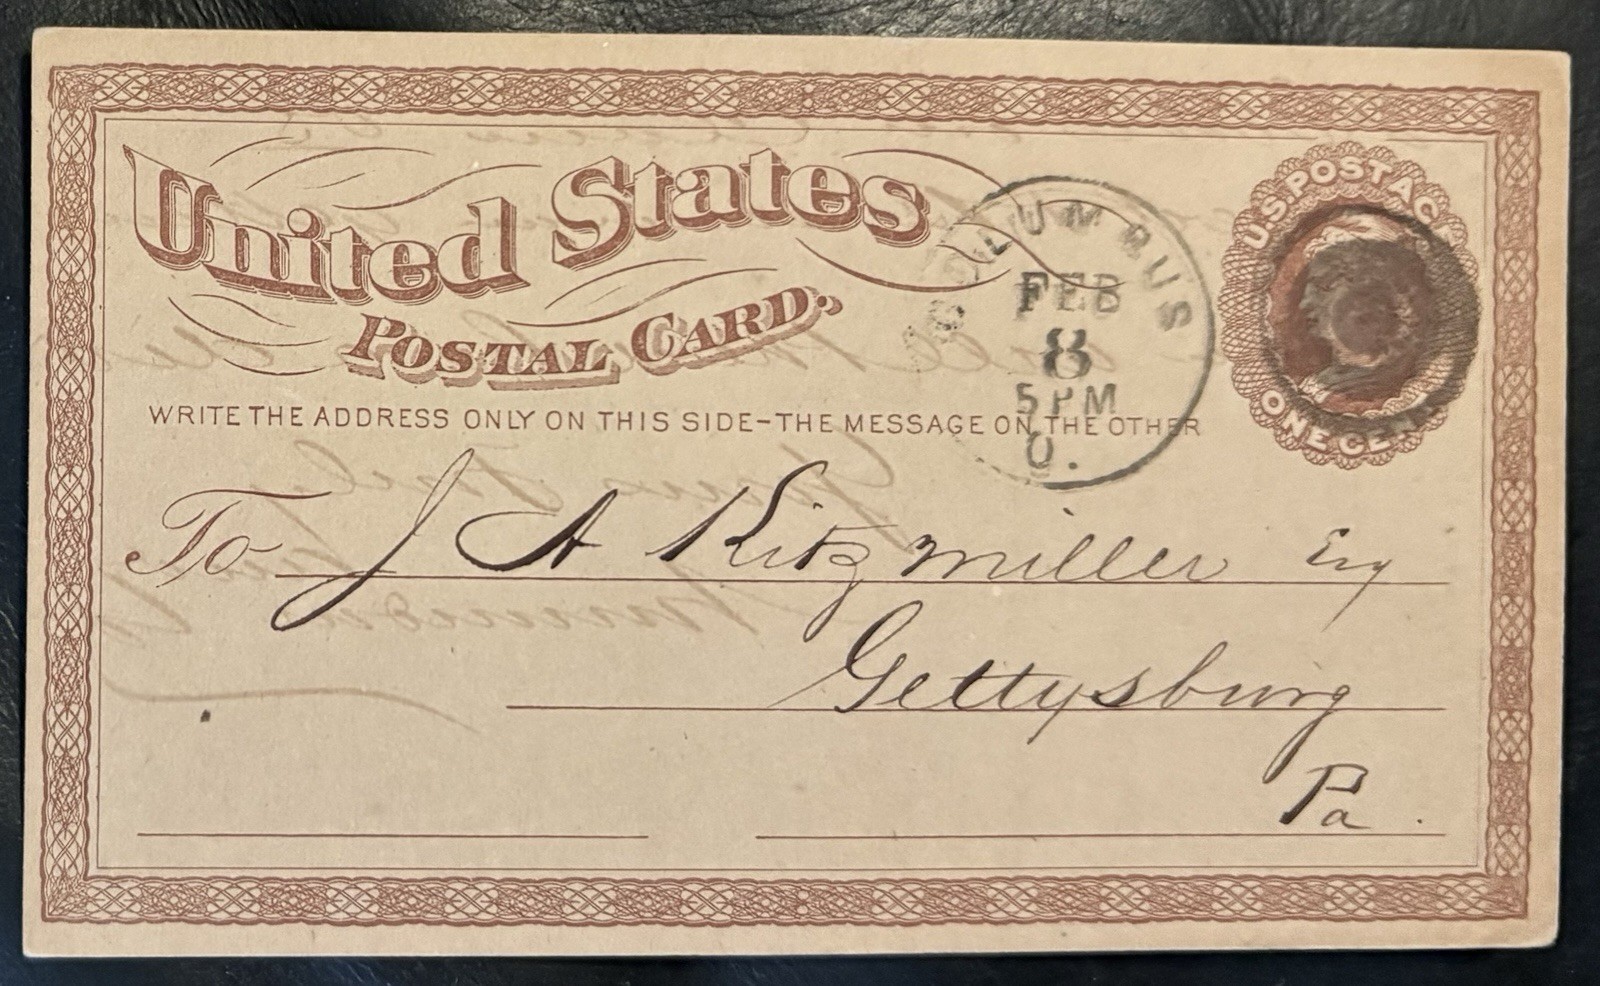 United States
POSTAL CARD.
U.S. POSTAGE
ONE CENT
COLUMBUS
FEB
8
5 PM
O.
WRITE THE ADDRESS ONLY ON THIS SIDE-THE MESSAGE ON THE OTHER
To J A Kitzmiller Esq
Gettysburg
Pa.